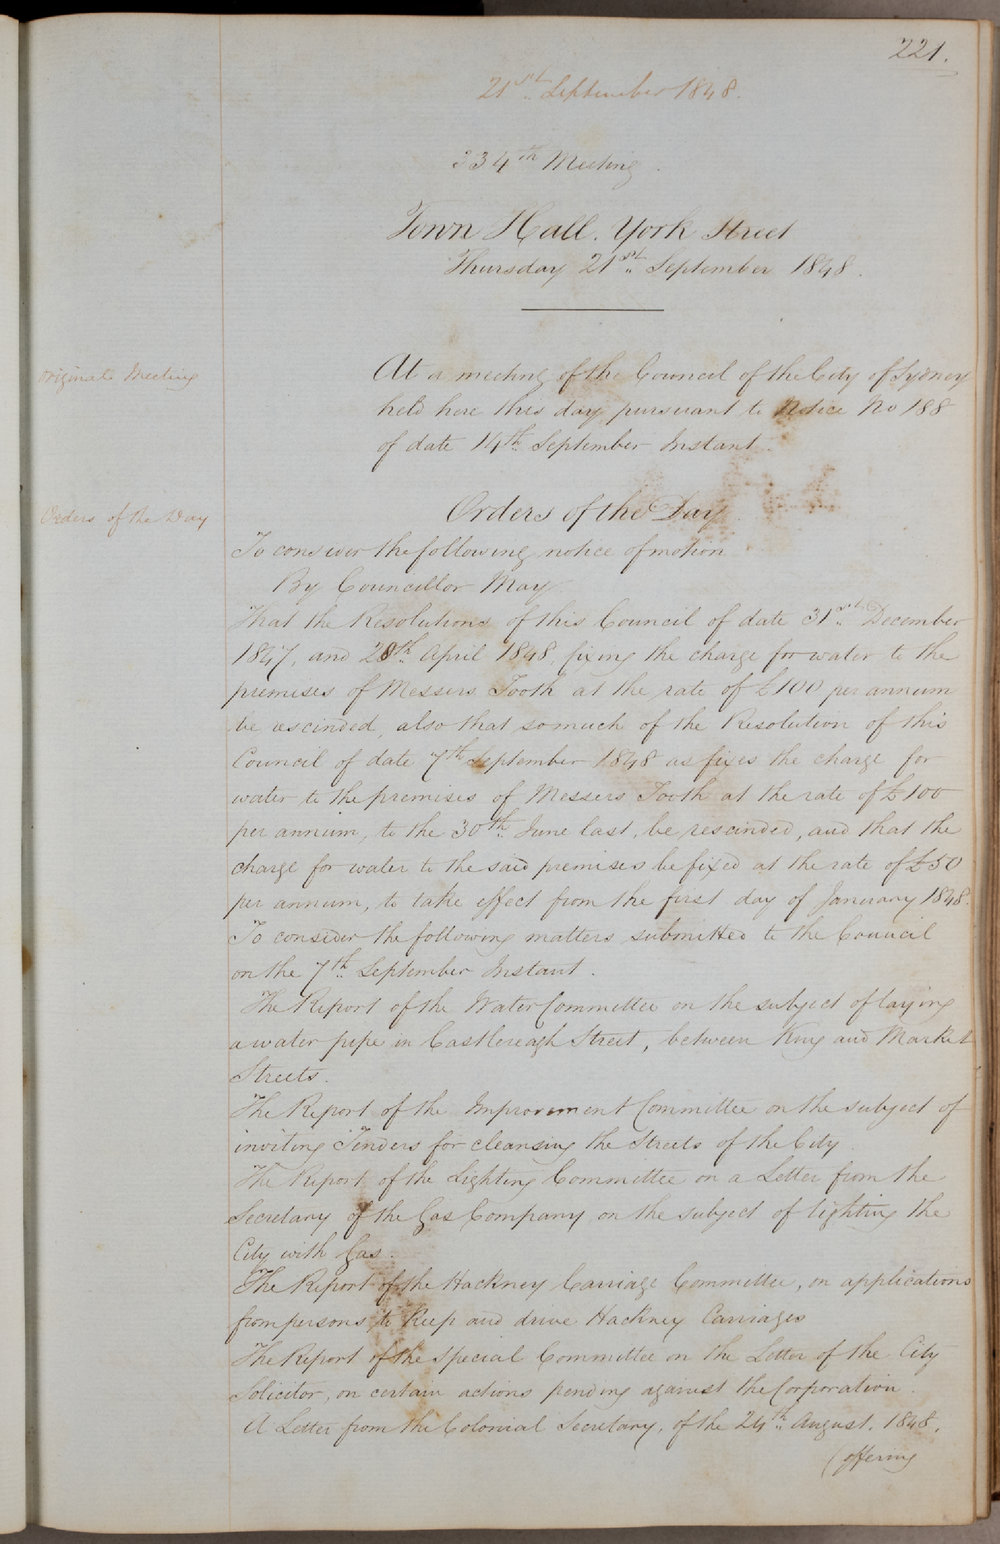 221.
21st September 1848.
234th Meeting.
Town Hall. York Street
Thursday 21st September 1848.
Originate Meeting
At a meeting of the Council of the City of Sydney
held here this day pursuant to Notice No 188
of date 14th September Instant.
Orders of the Day
Orders of the Day.
To consider the following notice of motion
By Councillor May.
That the Resolutions of this Council of date 31st December
1847, and 28th April 1848, fixing the charge for water to the
premises of Messers Tooth at the rate of £100 per annum
be rescinded, also that so much of the Resolution of this
Council of date 7th September 1848 as fixes the charge for
water to the premises of Messers Tooth at the rate of £100
per annum, to the 30th June last, be rescinded, and that the
charge for water to the said premises be fixed at the rate of £50
per annum, to take effect from the first day of January 1848.
To consider the following matters submitted to the Council
on the 7th September Instant.
The Report of the Water Committee on the subject of laying
a water pipe in Castlereagh Street, between King and Market
Streets.
The Report of the Improvement Committee on the subject of
inviting Tenders for cleansing the Streets of the City
The Report of the Lighting Committee on a Letter from the
Secretary of the Gas Company on the subject of lighting the
City with Gas.
The Report of the Hackney Carriage Committee, on applications
from persons to Keep and drive Hackney Carriages
The Report of the special Committee on the Letter of the City
Solicitor, on certain actions pending against the Corporation.
A Letter from the Colonial Secretary, of the 24th August. 1848,
(offering